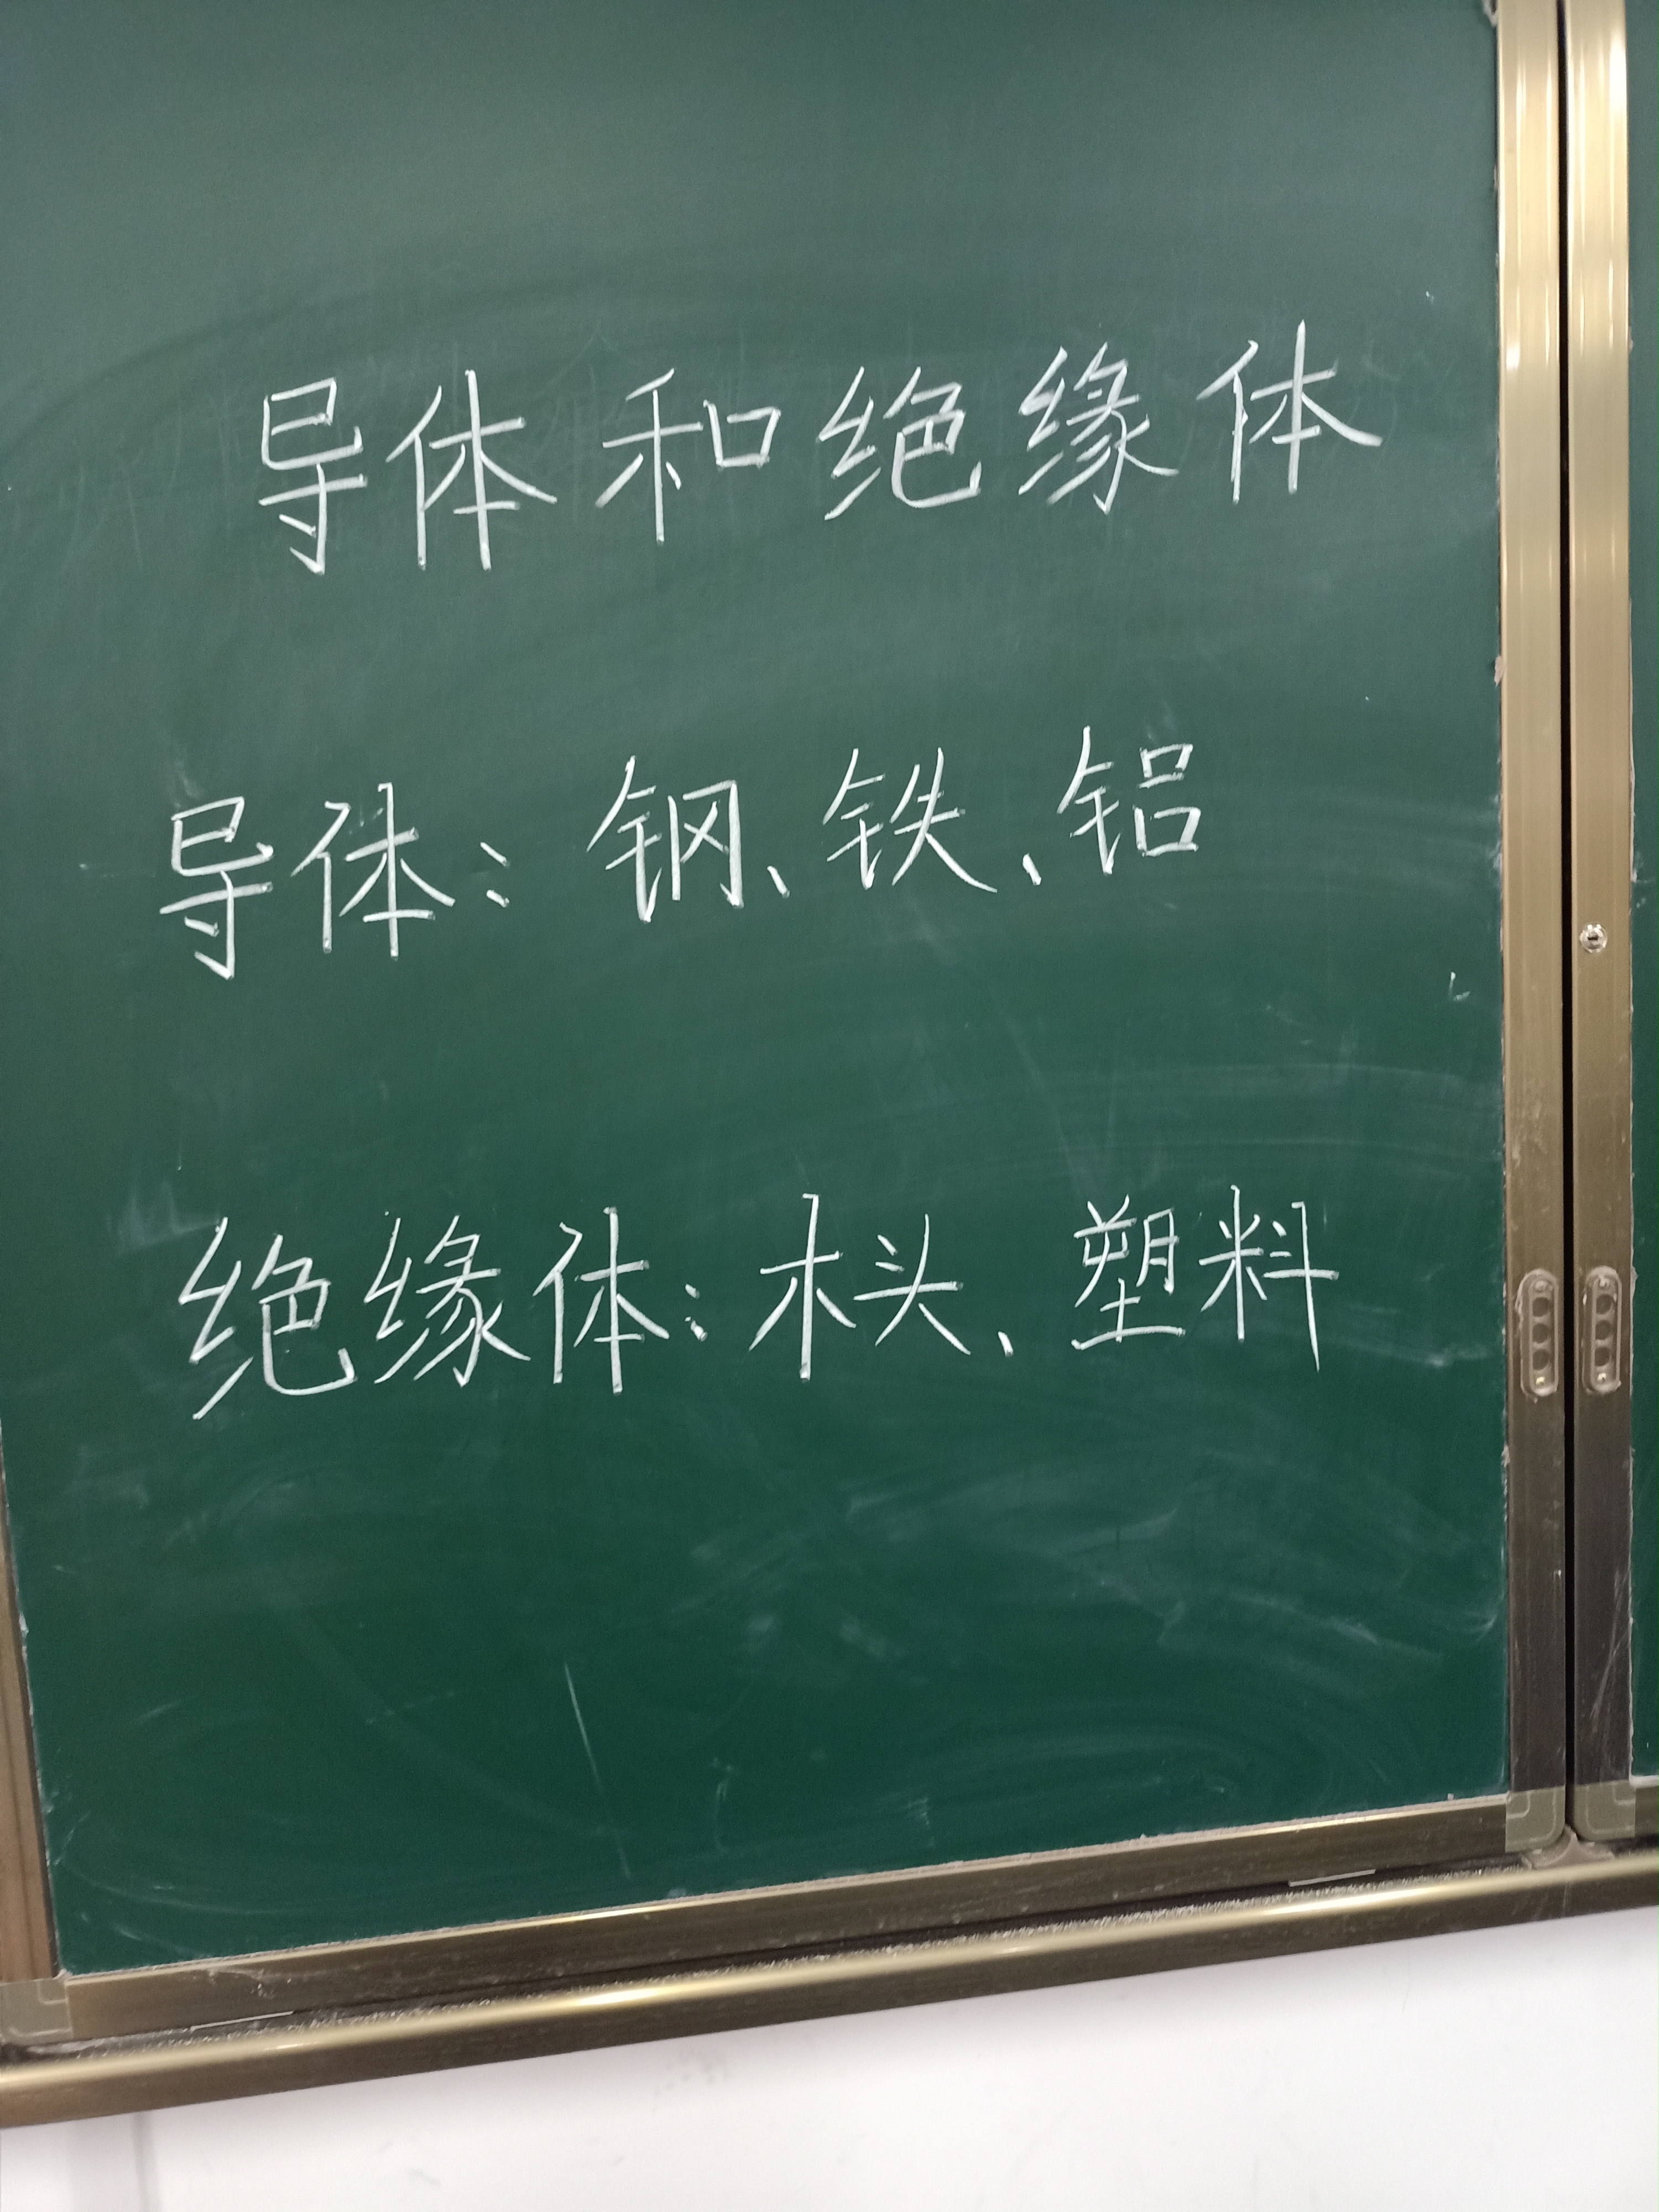 导体和绝缘体
导体：钢、铁、铝
绝缘体：木头、塑料